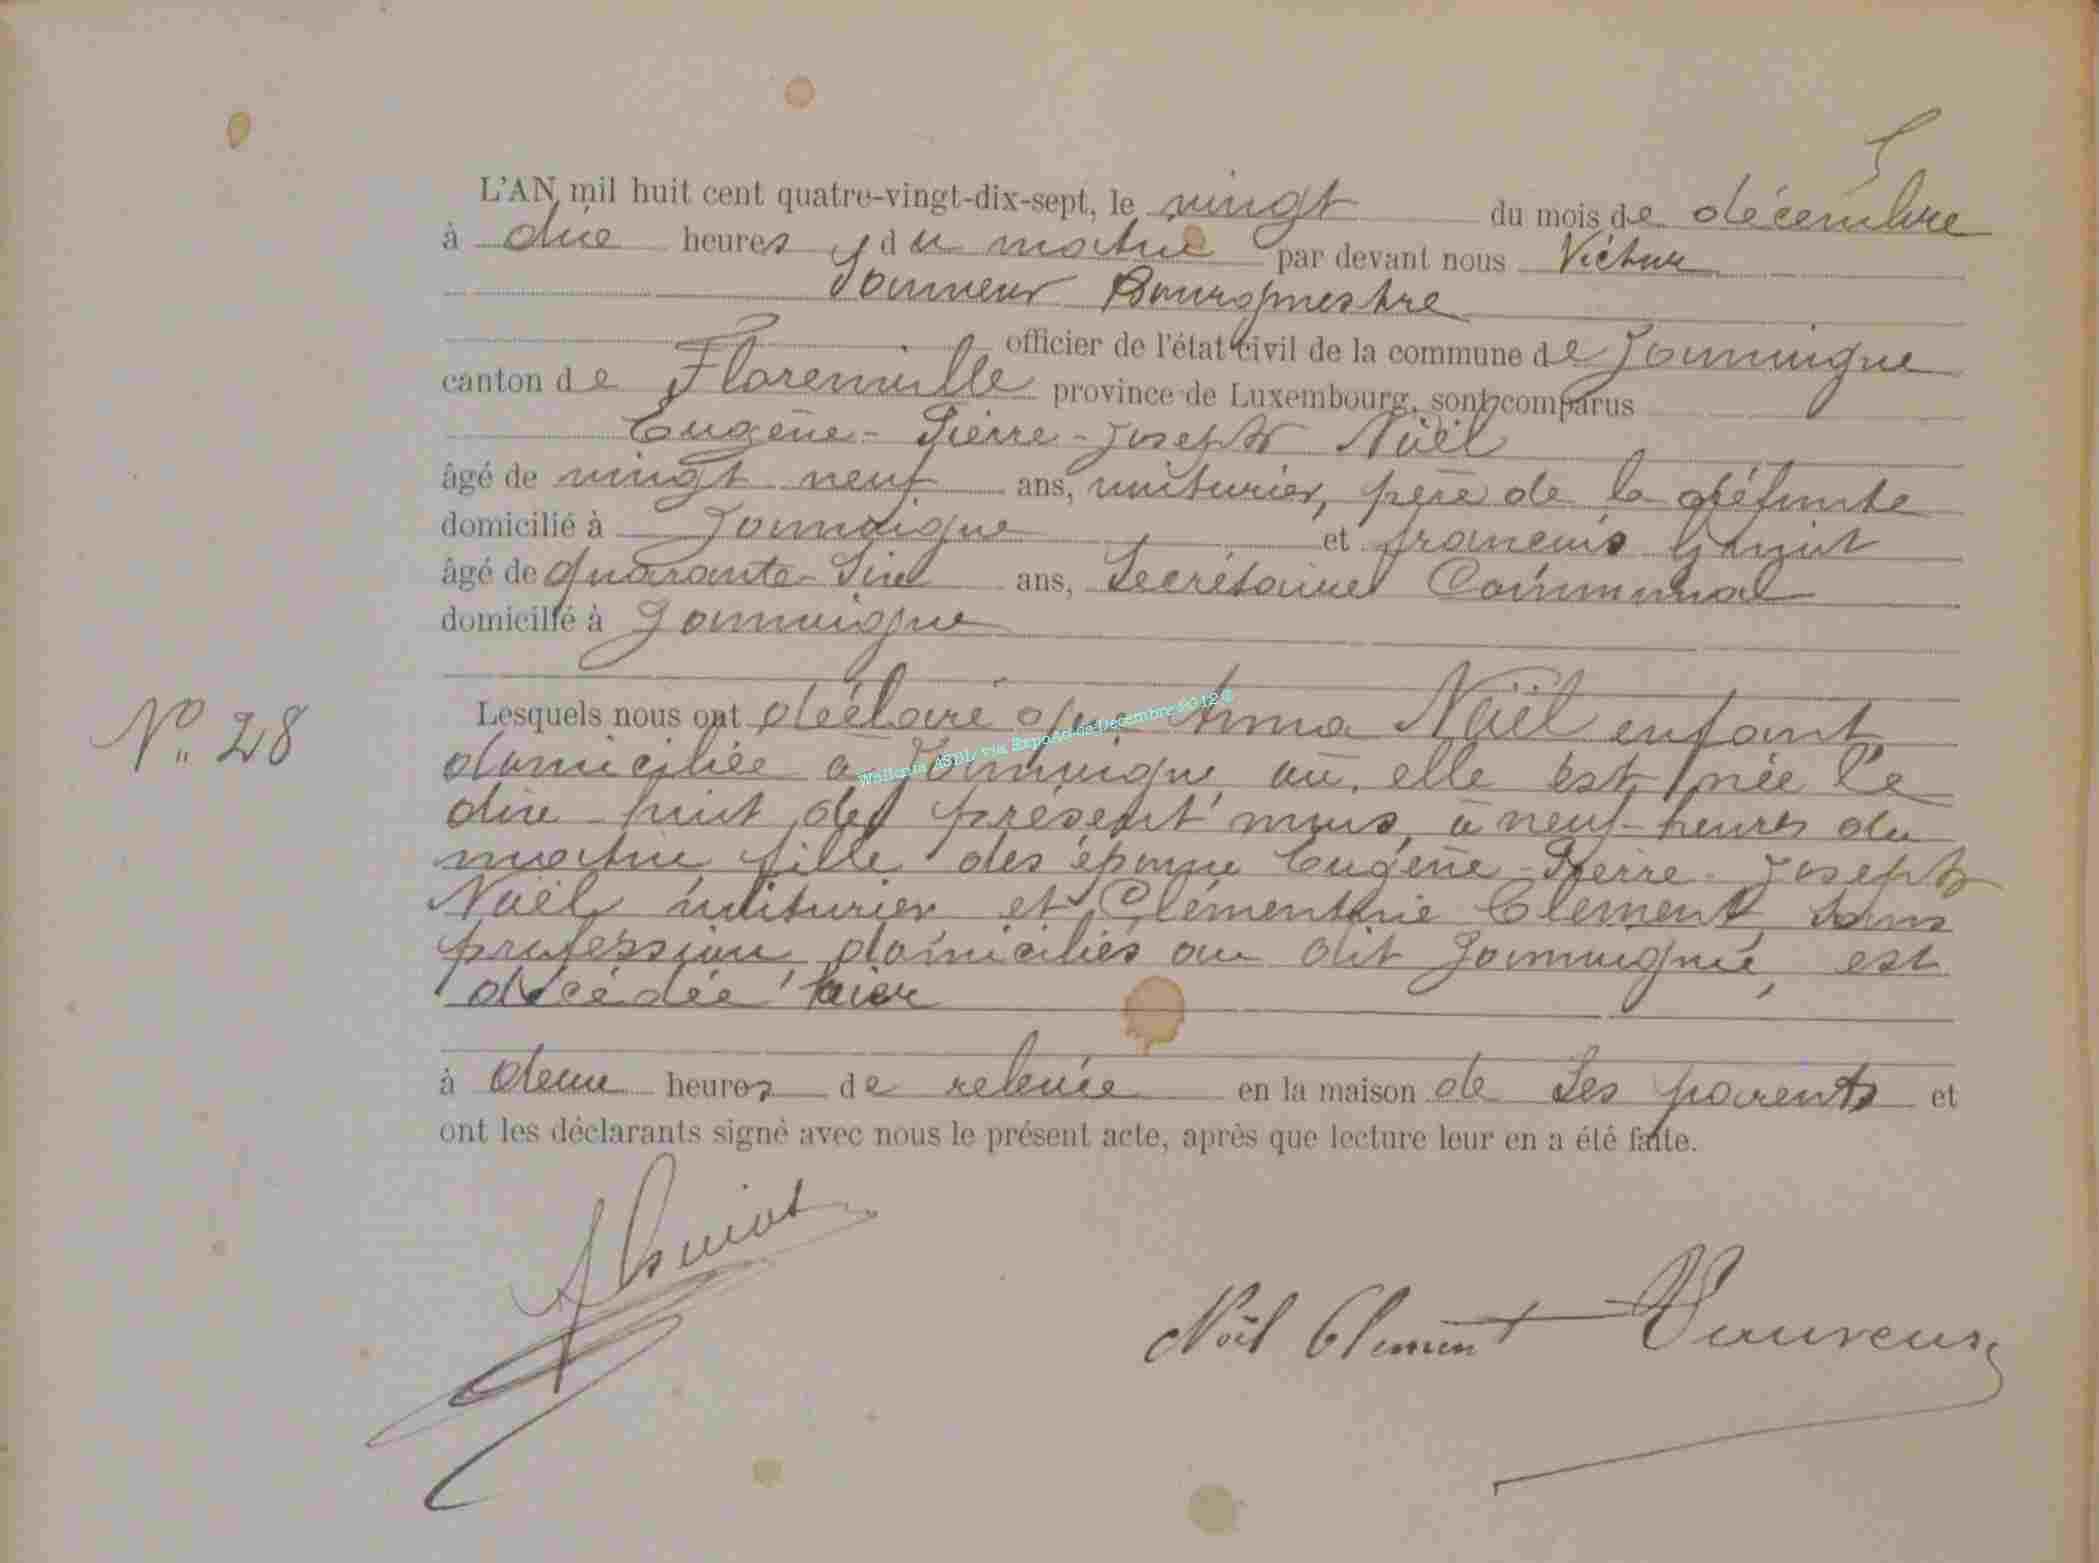 L'AN mil huit cent quatre-vingt-dix-sept, le vingt du mois de décembre
à dix heures du matin par devant nous Victor
Bourgmestre
officier de l'état civil de la commune de Jamoigne
canton de Florenville province de Luxembourg, sont comparus
Eugène-Pierre-Joseph Noël
âgé de vingt neuf ans, voiturier, père de la défunte
domicilié à Jamoigne et françois
âgé de quarante-six ans, Secrétaire Communal
domicilié à Jamoigne
Lesquels nous ont déclaré que Anna Noël enfant
domiciliée à Jamoigne où elle est née le
Wallonia ASBL via Expoactes Decembre 2012©
Nº 28
dix-huit du présent mois, à neuf heures du
matin, fille des époux Eugène-Pierre-Joseph
Noël voiturier et Clémentine Clément, sans
profession, domiciliés au dit Jamoigne, est
décédée hier
à deux heures de relevée en la maison de ses parents et
ont les déclarants signé avec nous le présent acte, après que lecture leur en a été faite.
Noël Clement